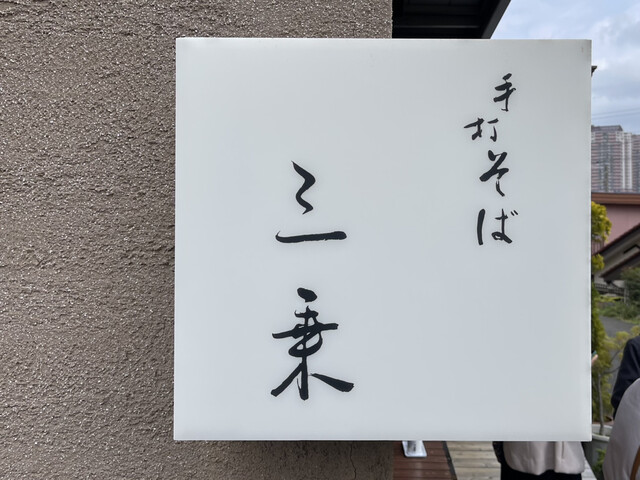 手打そば
三乗